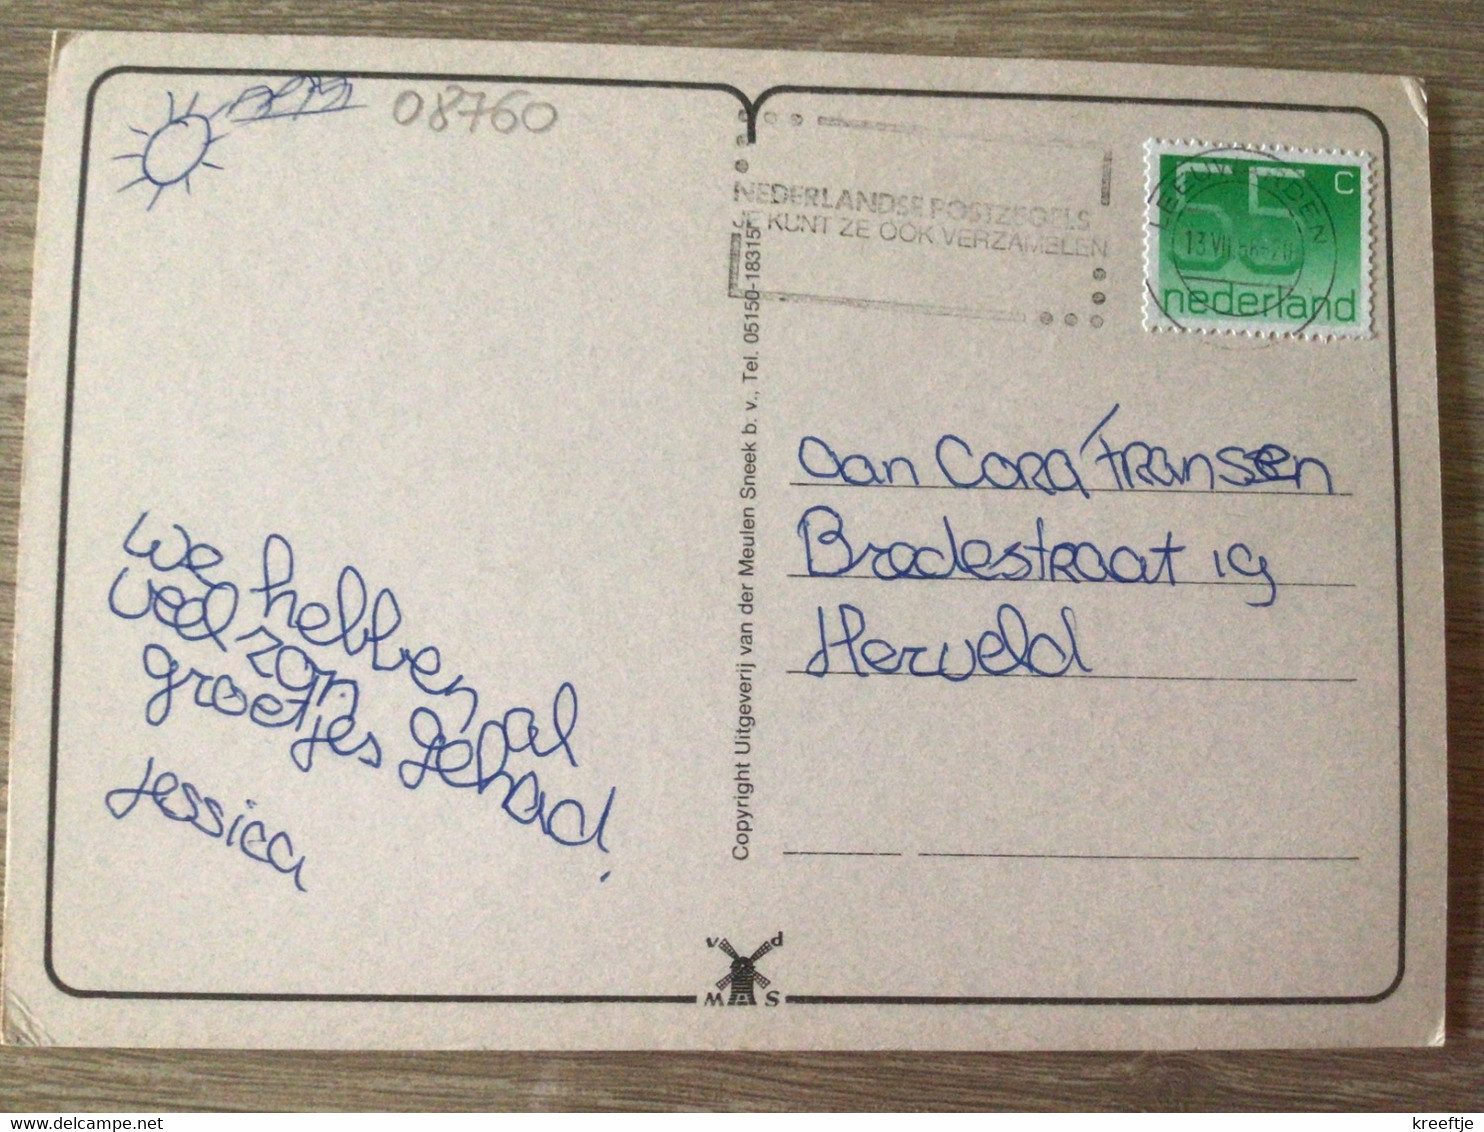 08760
NEDERLANDSE POSTZEGELS
JE KUNT ZE OOK VERZAMELEN
LEEUWARDEN
13 VII
55 C
nederland
we hebben al
veel zon gehad!
groetjes
Jessica
Copyright Uitgeverij van der Meulen Sneek b. v., Tel. 05150-18315
aan Cora Franssen
Bradestraat 19
Herveld
v d
M S
kreeftje